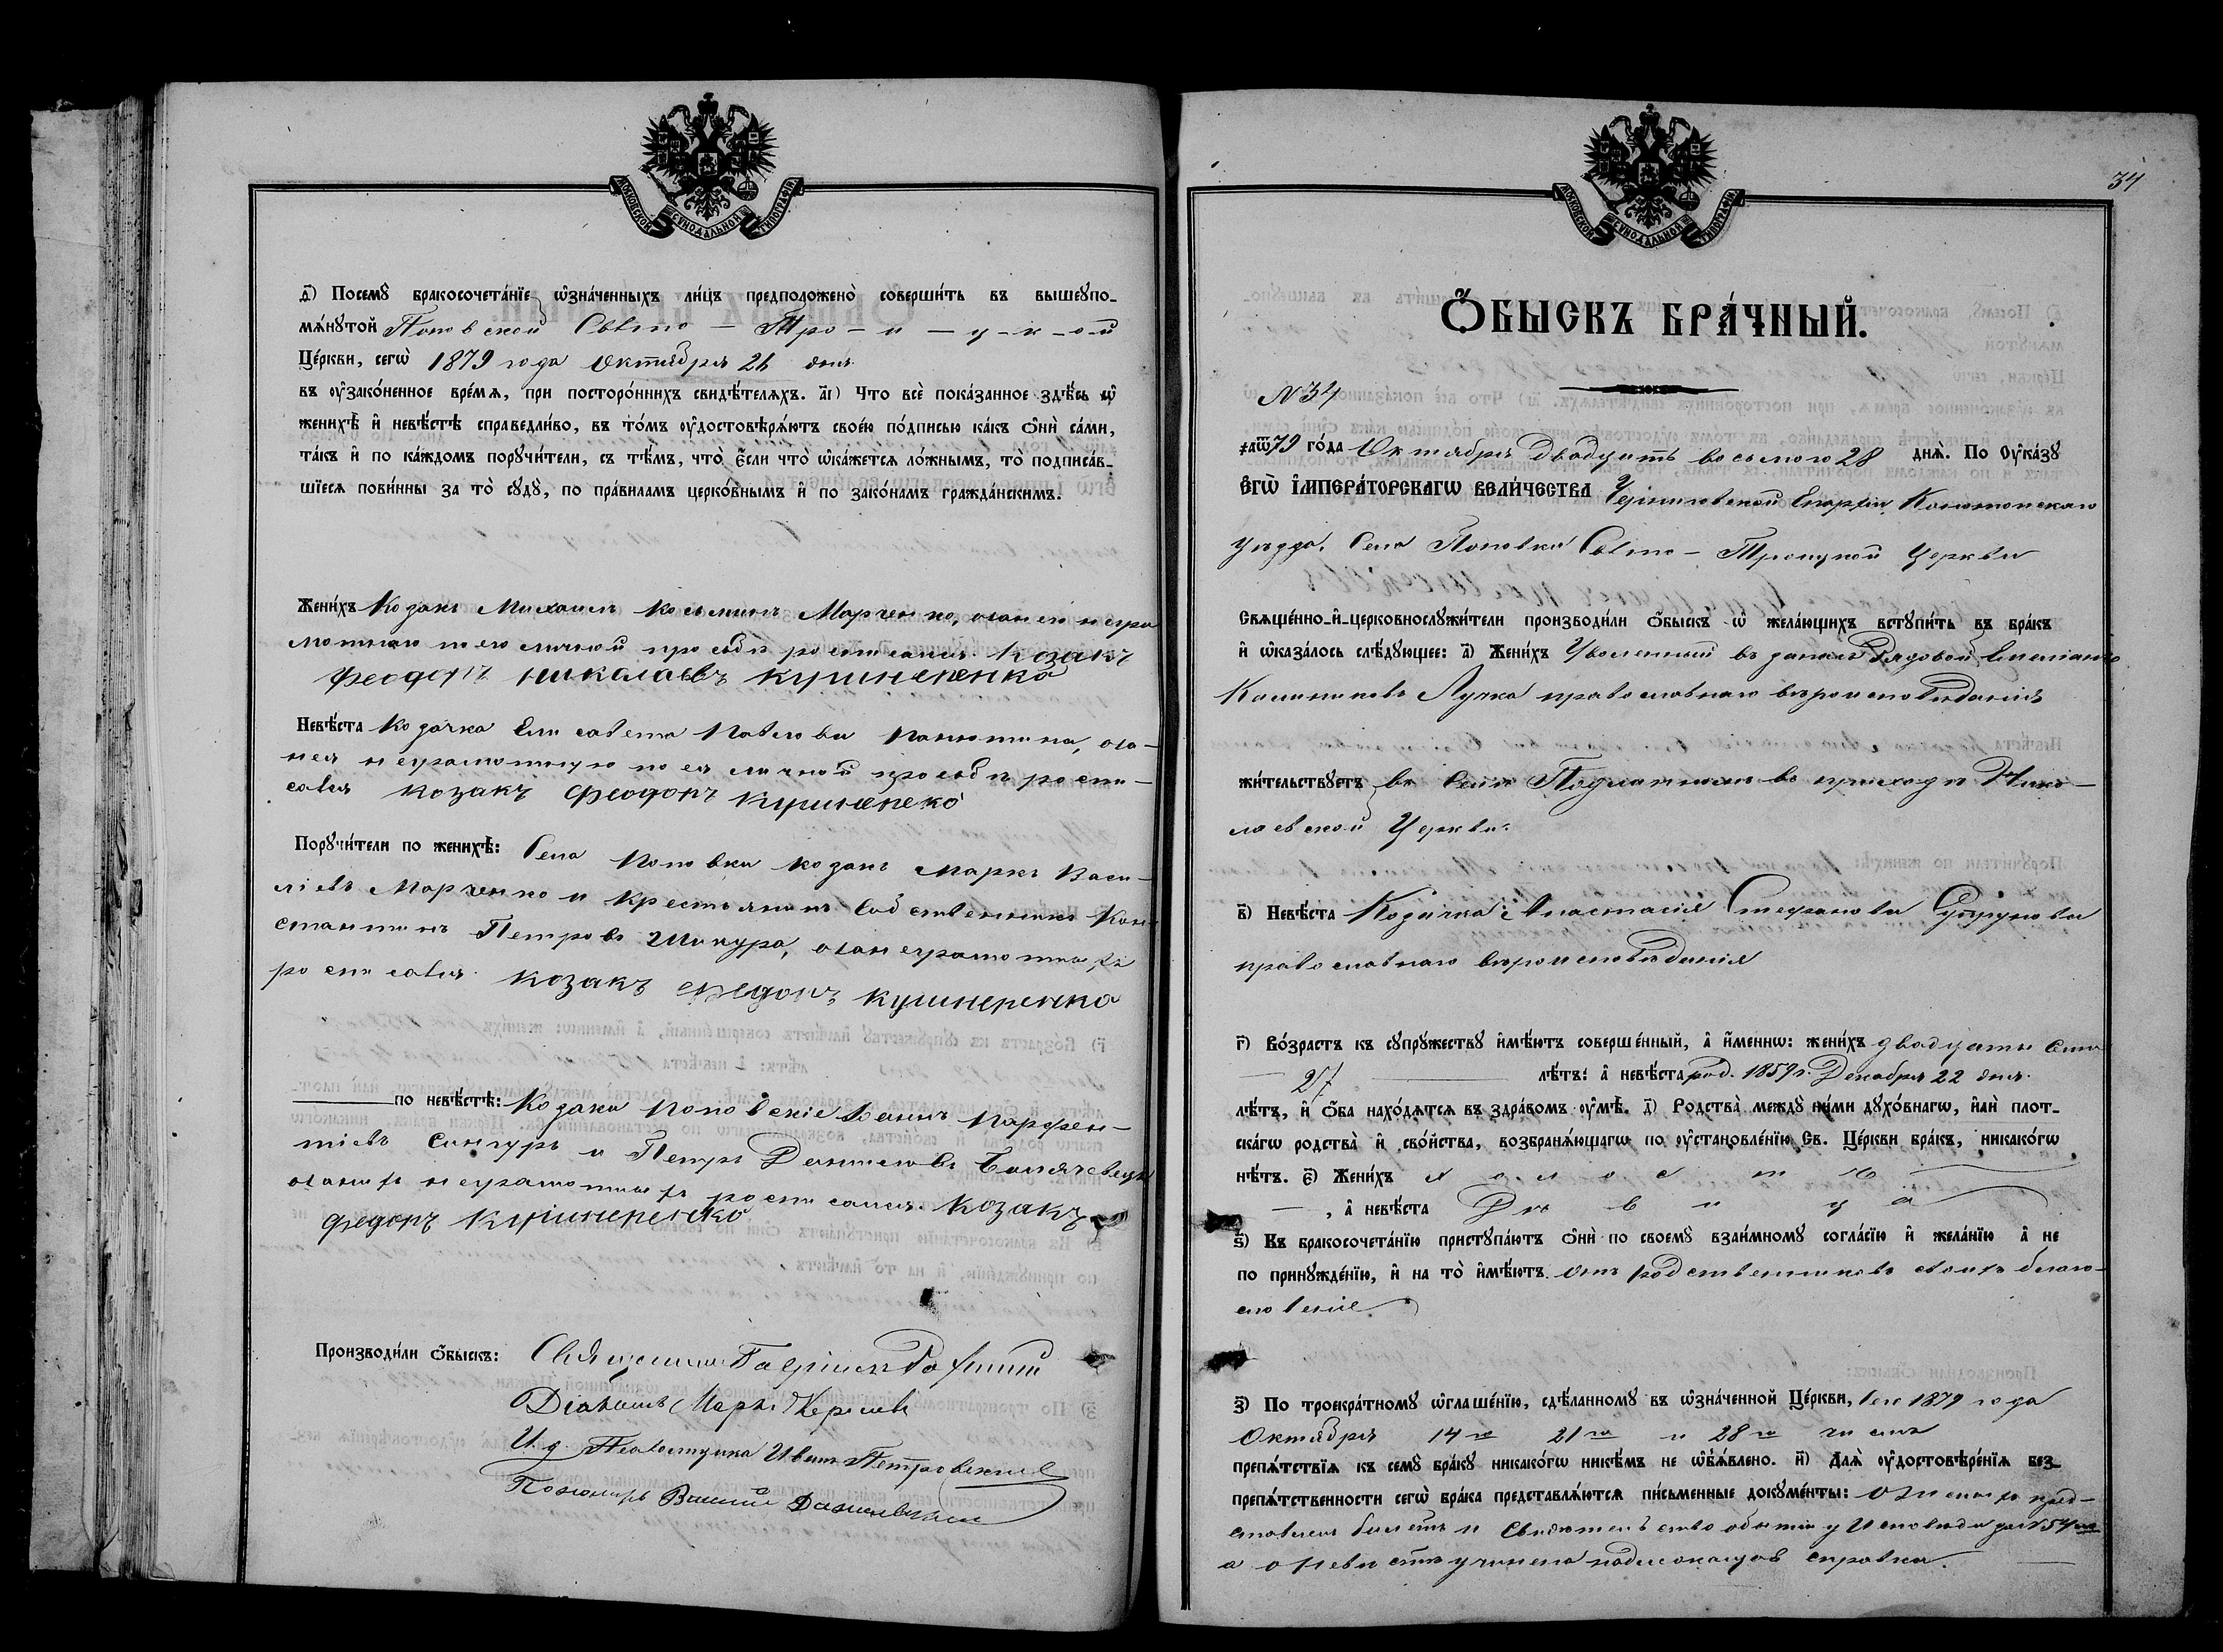 МОСКОВСКОЙ СУНОДАЛЬНОЙ ТИПОГРАФІИ
д҃) Посемꙋ бракосочета́нїе ѡ҆зна́ченныхъ ли́цъ предположено̀ соверши́ть въ вышеꙋпо-
мѧ́нꙋтой Поповской Свято - Тро - и - ц - к - ой
Це́ркви, сегѡ̀ 1879 года Октября 21 дня
въ ᲂу҆зако́ненное вре́мѧ, при посторо́ннихъ свидѣ́телѧхъ. а҃і) Что всѐ пока́занное здѣ́сь ѡ҆
женихѣ̀ и҆ невѣ́стѣ справедли́во, въ то́мъ ᲂу҆достовѣрѧ́ютъ свое́ю по́дписью ка́къ ѻ҆нѝ са́ми,
та́къ и҆ по ка́ждомъ порꙋчи́тели, съ тѣ́мъ, что̀ є҆́сли что̀ ѡ҆ка́жетсѧ ло́жнымъ, то̀ подписа́в-
шїесѧ пови́нны за то̀ сꙋдꙋ̀, по пра́виламъ церко́внымъ и҆ по зако́намъ гражда́нскимъ.
Жени́хъ Козакъ Михаилъ Косьминъ Марченко, а за него негра
мотнаго по его личной прозьбѣ росписался козакъ
Феодоръ Николаевъ Кушнеренко
Невѣ́ста Козачка Елисавета Павлова, а за
нея неграмотную по ея личной прозьбѣ роспи-
сался козакъ Феодоръ Кушнеренко
Порꙋчи́тели по женихѣ̀: Села Поповки козакъ Маркъ Васи-
ліевъ Марченко и крестьянинъ собственникъ Кон-
стантинъ Петровъ Шикура, а за неграмотныхъ
росписался козакъ Федоръ Кушнеренко
по невѣ́стѣ: Козаки Поповскіе Іоаннъ Парфен-
тіевъ и Петръ Даниловъ
а за нихъ неграмотныхъ росписался козакъ
Федоръ Кушнеренко
Производи́ли ѻ҆́быскъ: Священникъ Гавріилъ
Діаконъ Маркъ
И. д. Псаломщика Иванъ Петровскій
Пономарь Василій
34
МОСКОВСКОЙ СУНОДАЛЬНОЙ ТИПОГРАФІИ
Ѻ҆́БЫСКЪ БРА́ЧНЫЙ.
N 34
҂аѡ҃79 го́да Октября двадцать восьмого 28 днѧ̀. По Оу҆ка́зꙋ
є҆гѡ̀ і҆мпера́торскагѡ вели́чества Черниговской Епархіи, Конотопскаго
уѣзда, села Поповки Свято - Троицкой Церкви
Свѧще́нно-и҆-церковнослꙋжи́тели производи́ли ѻ҆́быскъ ѡ҆ жела́ющихъ встꙋпи́ть въ бра́къ
и҆ ѡ҆каза́лось слѣ́дꙋющее: а҃) Жени́хъ Уволенный въ запасъ Рядовой Емеліанъ
Калиниковъ Лучка православнаго вѣроисповѣданія
жи́тельствꙋетъ въ селѣ Подлипномъ въ приходѣ Нико-
лаевской Церкви.
в҃) Невѣ́ста Козачка Анастасія Стефанова Супрунова
православнаго вѣроисповѣданія
г҃) Во́зрастъ къ сꙋпрꙋ́жествꙋ и҆мѣ́ютъ соверше́нный, а҆ и҆́меннѡ: жени́хъ двадцать семь
27 лѣ́тъ: а҆ невѣ́ста род. 1859 г. Декабря 22 дня.
лѣ́тъ, и҆ ѻ҆́ба нахо́дѧтсѧ въ здра́вомъ ᲂу҆мѣ̀. д҃) Родства̀ междꙋ̀ ни́ми дꙋхо́внагѡ, и҆лѝ плот-
ска́гѡ родства̀ и҆ сво́йства, возбранѧ́ющагѡ по ᲂу҆становле́нїю Св. Це́ркви бра́къ, никако́гѡ
нѣ́тъ. є҃) Жени́хъ холостъ
, а҆ невѣ́ста Дѣвица
ѕ҃) Къ бракосочета́нїю пристꙋпа́ютъ ѻ҆нѝ по своемꙋ̀ взаи́мномꙋ согла́сїю и҆ жела́нїю а҆ не
по принꙋжде́нїю, и҆ на то̀ и҆мѣ́ютъ отъ родственниковъ своихъ благо-
словеніе.
з҃) По троекра́тномꙋ ѡ҆глаше́нїю, сдѣ́ланномꙋ въ ѡ҆зна́ченной Це́ркви, сего 1879 года
Октября 14го 21го и 28го числъ
препѧ́тствїѧ къ семꙋ̀ бра́кꙋ никако́гѡ никѣ́мъ не ѡ҆б̾ѧ́влено. и҃) Длѧ̀ ᲂу҆достовѣре́нїѧ без-
препѧ́тственности сегѡ̀ бра́ка представлѧ́ютсѧ пи́сьменные докꙋме́нты: о женихѣ пред-
ставленъ билетъ и свидѣтельство о бытіи у Исповѣди за N 54мъ
а о невѣстѣ учинена надлежащая справка.